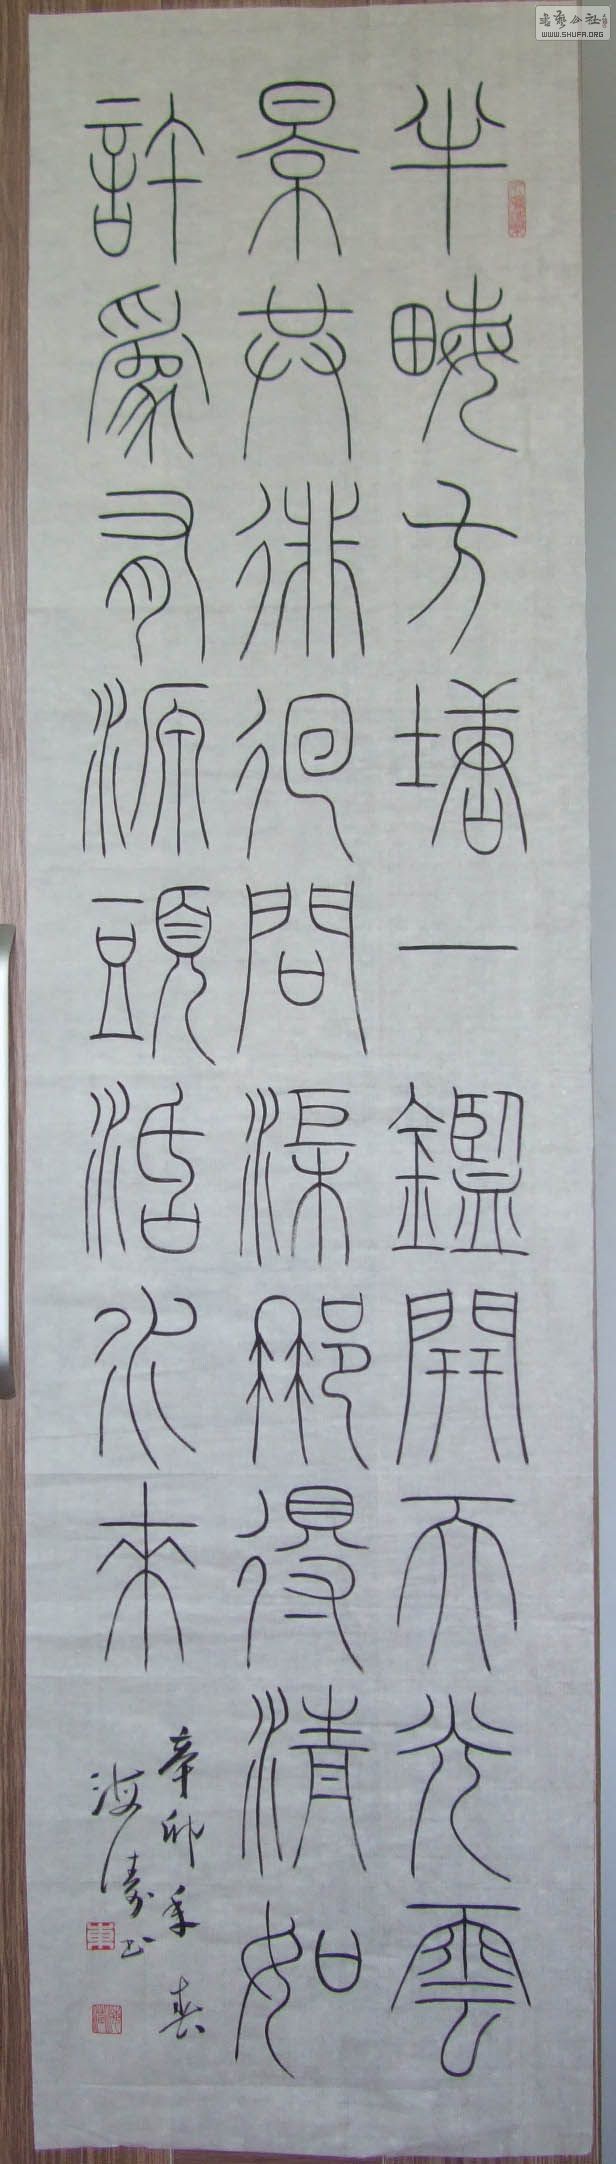 半畝方塘一鑑開天光雲
景共徘徊問渠那得清如
許爲有源頭活水來
辛卯年春
海濤書
书艺公社
WWW.SHUFA.ORG